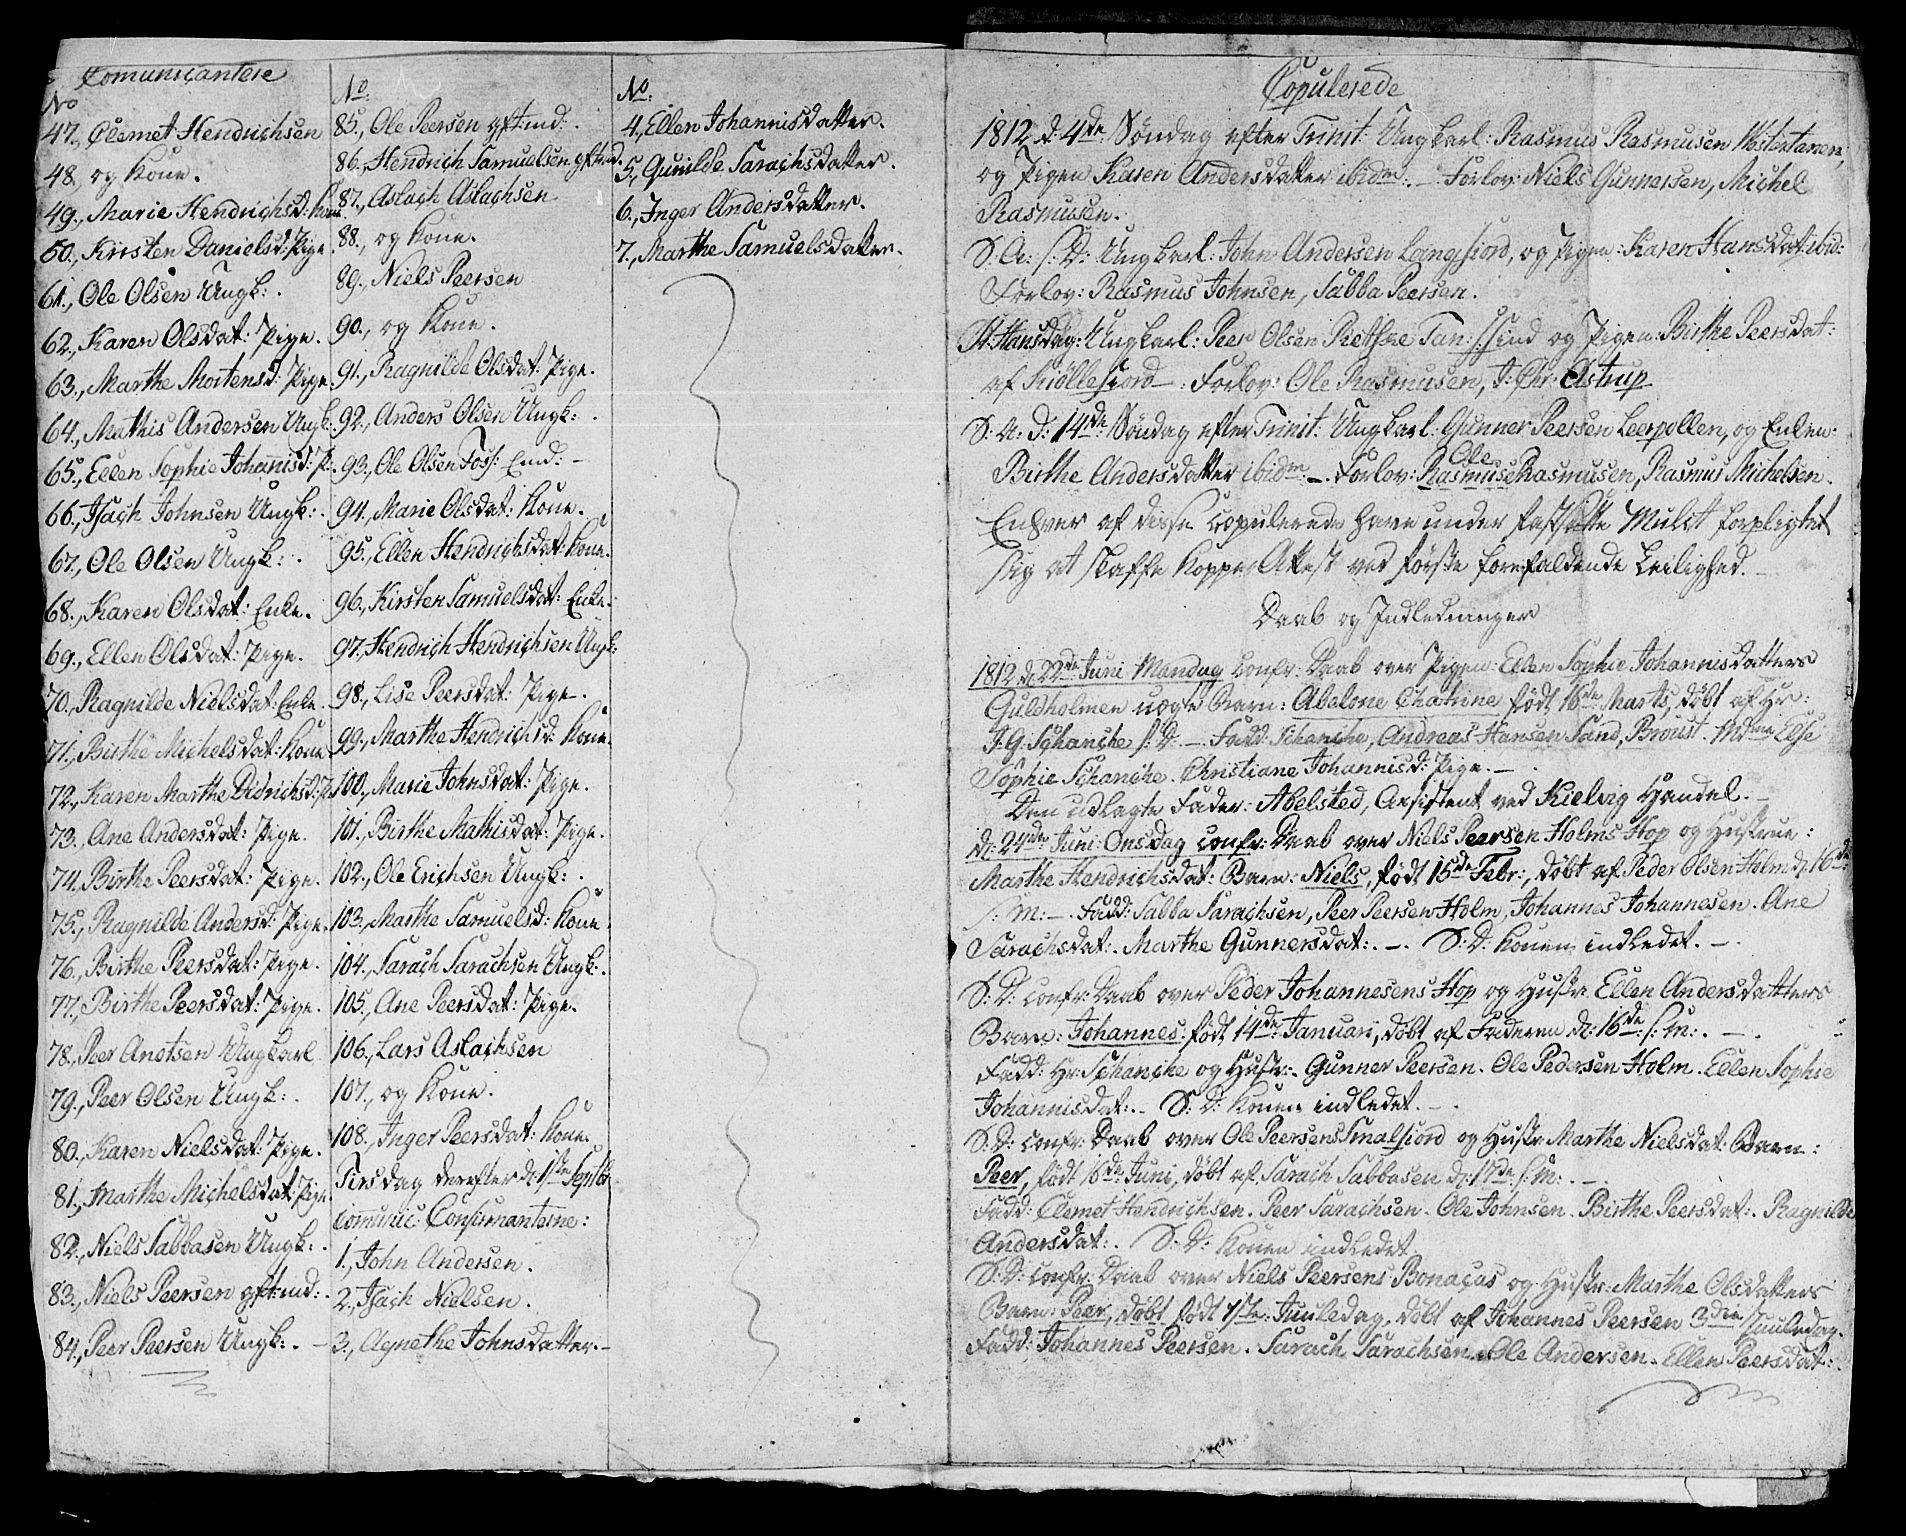 Comunicantere
No
47., Clemet Hendrichsen
48., og Kone.
49., Marie Hendrichsd: Kone
50., Kirsten Danielsd: Pige.
61., Ole Olsen Ungk: .
62., Karen Olsdat: Pige.
63., Marthe Mortensd: Pige.
64., Mathis Andersen Ungk:
65., Ellen Sophie Johannisd: P:
66., Isach Johnsen Ungk: .
67., Ole Olsen Ungk: .
68., Karen Olsdat: Enke.
69., Ellen Olsdat: Pige.
70., Ragnilde Nielsdat: Enke.
71., Birthe Michelsdat: Kone
72., Karen Marthe Didrichsd: P.
73., Ane Andersdat: Pige.
74., Birthe Peersdat: Pige.
75., Ragnilde Andersd: Pige.
76., Birthe Peersdat: Pige.
77., Birthe Peersdat: Pige.
78., Peer Anotsen Ungkarl
79., Peer Olsen Ungk: .
80., Karen Nielsdat: Pige.
81., Marthe Michelsdat: Pige
82., Niels Sabbasen Ungk: .
83., Niels Peersen gft:md: .
84., Peer Peersen Ungk: . –
No:
85., Ole Peersen gft:md: .
86., Hendrich Samuelsen gft:md.
87., Aslach Aslachsen
88., og Kone.
89., Niels Peersen
90., og Kone.
91., Ragnilde Olsdat: Pige.
92., Anders Olsen Ungk: .
93., Ole Olsen Foss: End: –
94., Marie Olsdat: Kone.
95., Ellen Hendrichsdat: Kone.
96., Kirsten Samuelsdat: Enke.
97., Hendrich Hendrichsen Ungk:
98., Lise Peersdat: Pige.
99., Marthe Hendrichsd: Kone.
100., Marie Johnsdat: Pige.
101., Birthe Mathisdat: Pige.
102., Ole Erichsen Ungk: .
103., Marthe Samuelsd: Kone.
104., Sarach Sarachsen Ungk: .
105., Ane Peersdat: Pige.
106., Lars Aslachsen
107., og Kone.
108., Inger Peersdat: Kone.
Tirsdag derefter d: 1ste Septbr
Communic: Confirmanterne:
1., John Andersen.
2., Isach Nielsen.
3., Agnethe Johnsdatter. –
No:
4., Ellen Johannisdatter.
5., Gunilde Sarachsdatter.
6., Inger Andersdatter.
7., Marthe Samuelsdatter.
Copulerede
1812 d: 4de Søndag efter Trinit: Ungkarl: Rasmus Rasmusen Westertanen,
og Pigen Karen Andersdatter ibidm: – Forlov: Niels Gunnersen, Michel
Rasmusen.
S: A: s: D: Ungkarl: John Andersen Langfiord, og Pigen: Karen Hansdat: ibid:
Forlov: Rasmus Johnsen, Sabba Peersen.
St: Hansdag: Ungkarl: Peer Olsen Tan: og Pigen: Birthe Peersdat:
af Kiøllefiord – : Forlov: Ole Rasmusen, J: Chr: Astrup
S: A: d: 14de Søndag efter Trinit: Ungkarl: Gunner Peersen Leerpollen, og Enken:
Birthe Andersdatter ibidm: –. Forlov: Rasmus Ole Rasmusen, Rasmus Michelsen.
Enhver af disse Copulerede have under fastsatte Mulct forpligtet
sig at skaffe Koppe Attest ved første forefaldende Leilighed. –
Daab og Indledninger
1812 d: 22de Juni Mandag confr: Daab over Pigen: Ellen Sophie Johannisdatters
Guldholmen uægte Barn: Abelone Chatrine født 16de Marts, døbt af Hr:
J. G. Schanche s: D: – Fadd: Schanche, Andreas Hansen Sand, Broust. Mdme Else
Sophie Schanche. Christiane Johannisd: Pige. –
Den udlagte Fader: Abelsted, Assistent ved Kielvig Handel. –
d: 24de Juni Onsdag confr: Daab over Niels Peersen Holms Hop og Hustrue:
Marthe Hendrichsdat: Barn: Niels, født 15de Febr:, døbt af Peder Olsen Holm d: 16de
s: M: –. Fadd: Sabba Sarachsen, Peer Peersen Holm, Johannes Johannesen. Ane
Sarachsdat: Marthe Gunnersdat: . –. S: D: Konen indledet. –
S: D: confr: Daab over Peder Johannesens Hop og Hustr: Ellen Andersdatters
Barn: Johannes: født 14de Januari, døbt af Faderen d: 16de s: M: . –
Fadd: Hr: Schanche og Hustr: . Gunner Peersen. Ole Pedersen Holm. Ellen Sophie
Johannisdat: . – S: D: Konen indledet. –
S: D: confr: Daab over Ole Peersens Smalfiord og Hustr: Marthe Nielsdat: Barn:
Peer, født 16de Juni, døbt af Sarach Sabbasen d: 17de s: M: . –
Fadd: Clemet Hendrichsen. Peer Sarachsen. Ole Johnsen. Birthe Peersdat: . Ragnilde
Andersdat: . S: D: Konen indledet.
S: D: confr: Daab over Niels Peersens Bonacas og Hustr: Marthe Olsdatters
Barn: Peer, døbt født 1ste Juuledag, døbt af Johannes Peersen 3die Juuledag.
Fadd: Johannes Peersen. Sarach Sarachsen. Ole Andersen. Ellen Peersdat: .